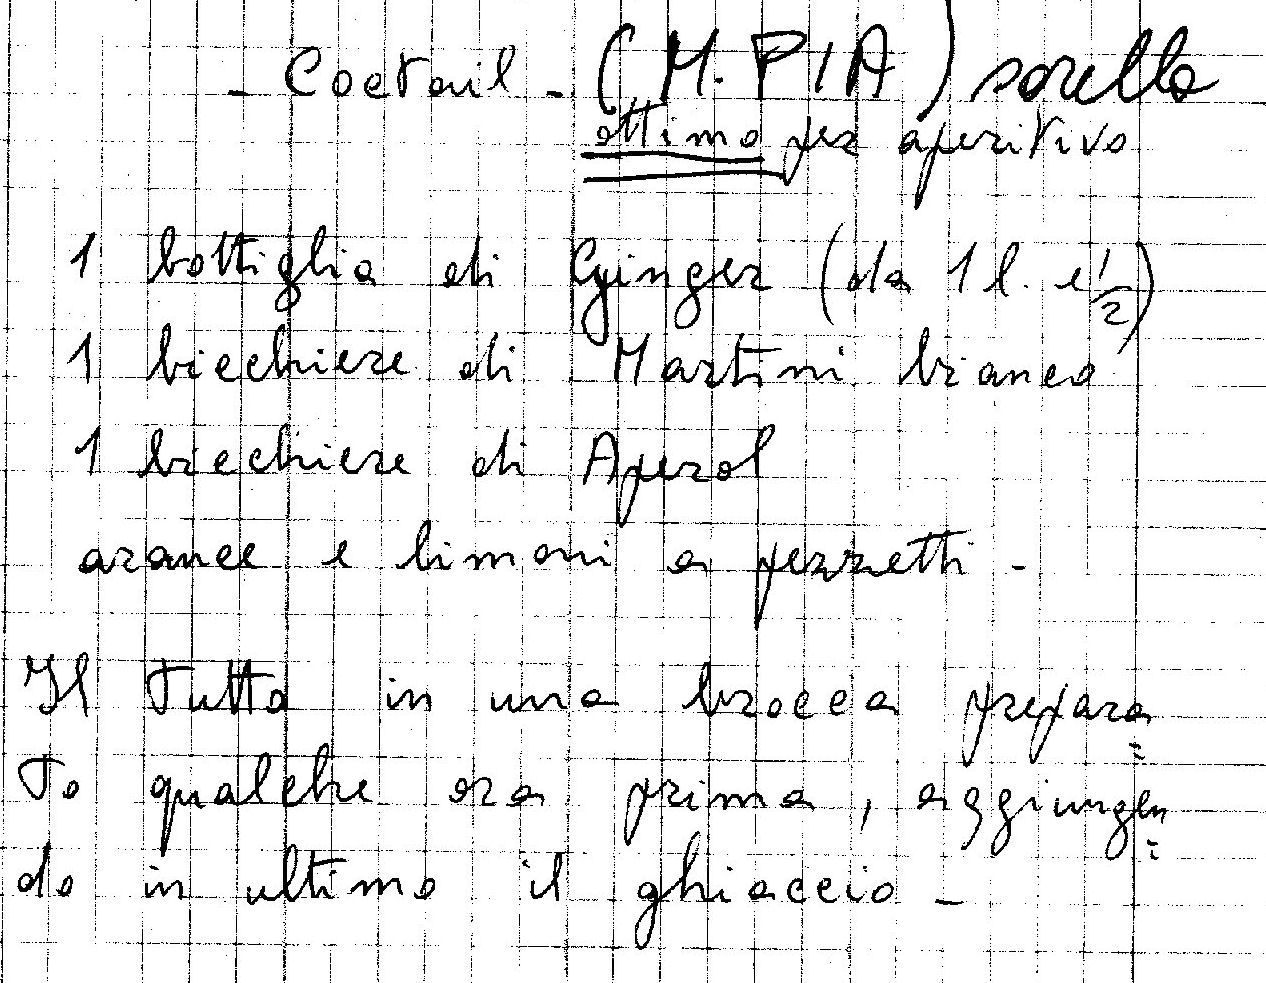 - Coctail - (M. PIA) sorella
ottimo per aperitivo
1 bottiglia di Ginger (da 1 l. e 1/2)
1 bicchiere di Martini bianco
1 bicchiere di Aperol
arance e limoni a pezzetti -
Il tutto in una brocca prepara=
to qualche ora prima, aggiungen=
do in ultimo il ghiaccio -